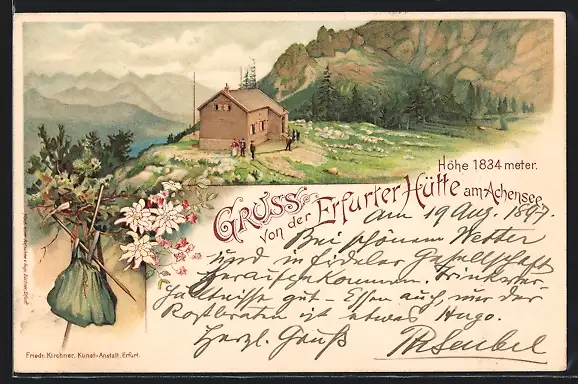 Höhe 1834 meter.
Gruss
von der Erfurter Hütte am Achensee
am 19 Aug. 1897.
Bei schönem Wetter
und in fideler Gesellschaft
heraufgekommen. Trinkver-
hältnisse gut – Essen auch, nur der
Rostbraten ist etwas Hugo.
Herzl. Gruß
Friedr. Kirchner, Kunst-Anstalt, Erfurt.